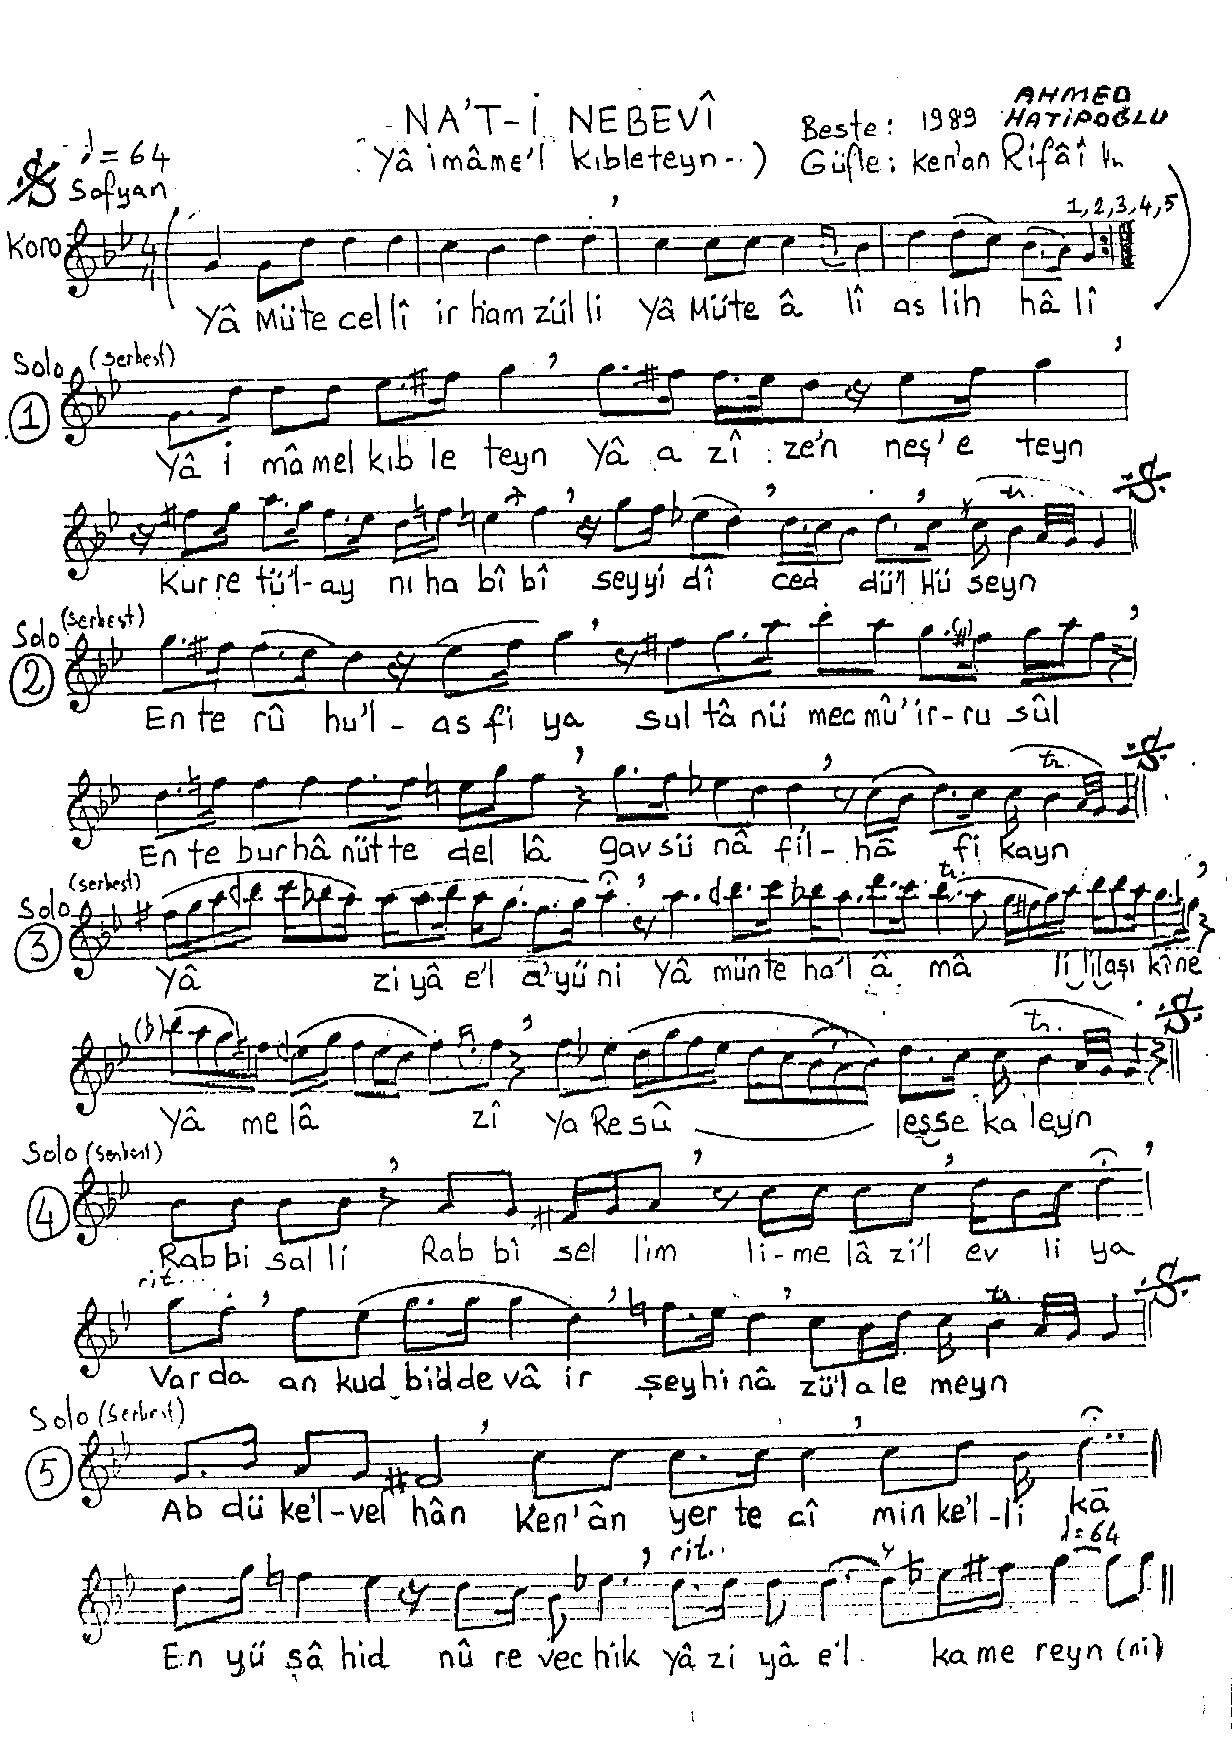 AHMED
NA'T-İ NEBEVÎ Beste: 1989 HATİPOĞLU
♩=64 (Yâ imâme'l kıbleteyn--) Güfte: ken'an Rifâî
Sofyan
1,2,3,4,5
Koro
Yâ Müte cellî ir ham zül li Yâ Müte â lî as lih hâ lî
Solo (Serbest)
1
Yâ i mâmel kıb le teyn Yâ a zî ze'n neş'e teyn
tr.
Kurre tü'l-ay nı ha bî bî seyyi dî ced dü'l Hü seyn
Solo (Serbest)
2
En te rû hu'l-as fi ya sul tâ nü mec mû'ir-ru sûl
tr.
En te bur hâ nüt te del lâ gav sü nâ fîl-hâ fi kayn
Solo (Serbest)
3 tr.
Yâ zi yâ e'l a'yü ni Yâ münte ha'l â mâ li lilaşı kîne
tr.
Yâ me lâ zî ya Re sû leşse ka leyn
Solo (Serbest)
4
Rab bi sal li Rab bi sel lim li-me lâ zi'l ev li ya
rit... tr.
Var da an kud bidde vâ ir şeyhi nâ zü'l a le meyn
Solo (Serbest)
5
Ab dü ke'l-vel hân Ken'ân yer te cî min ke'l-li kâ
rit.. ♩=64
En yü şâ hid nû re vec hik yâ zi yâ e'l ka me reyn (ni)